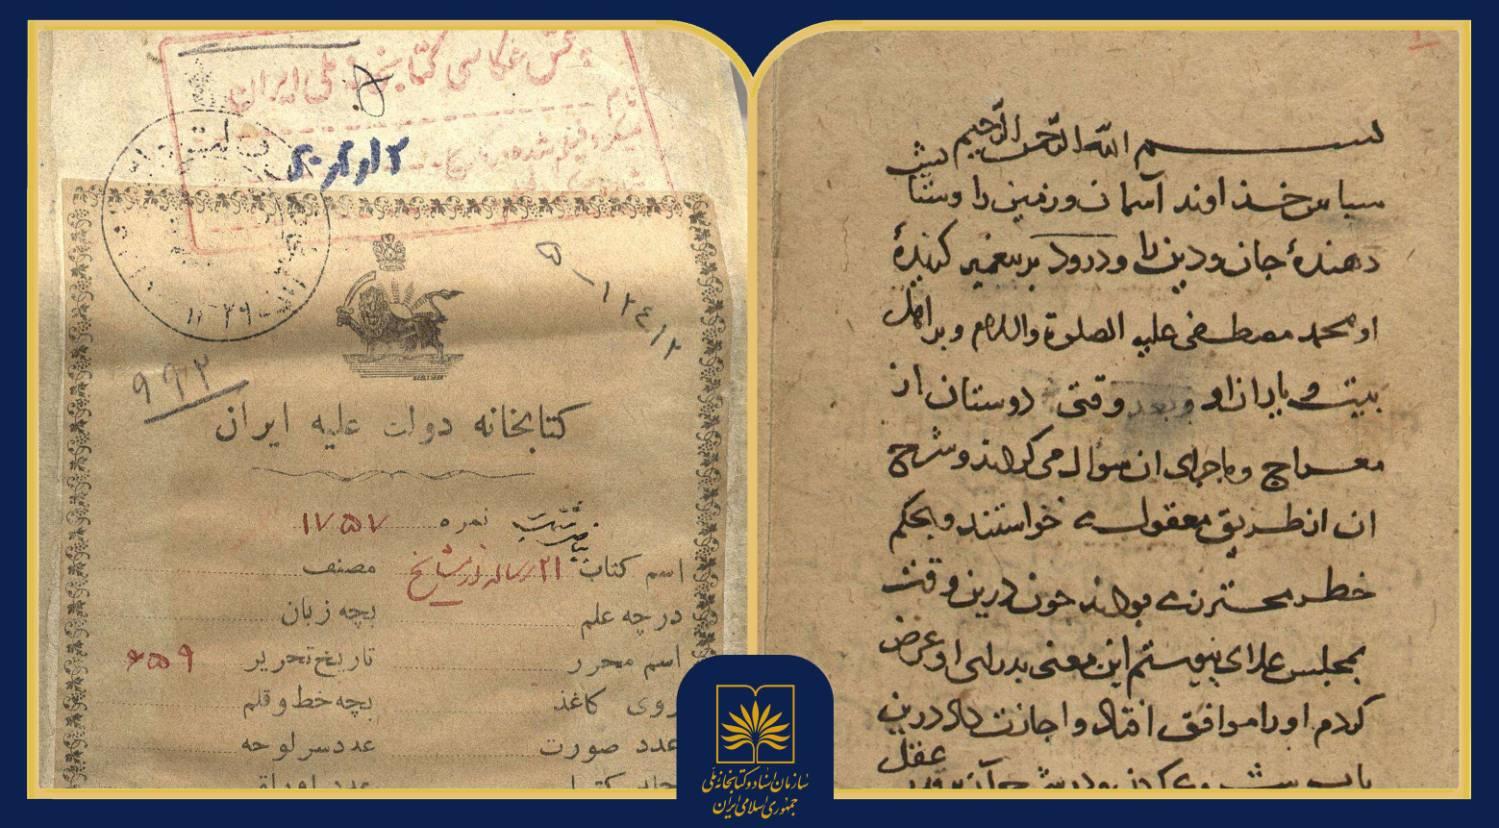 بخش عکاسی کتابخانه ملی ایران
۹۹۲
۵-۱۲۴/۲
کتابخانه دولت علیه ایران
نمره ۱۷۵۷
اسم کتاب ۲۱ رساله از مشایخ مصنف
در چه علم بچه زبان
اسم محرر تاریخ تحریر ۶۵۹
روی کاغذ بچه خط و قلم
عدد صورت عدد سر لوحه
بسم الله الرحمن الرحیم
سپاس خداوند آسمان و زمین را و ستایش
دهندهٔ جان و دین را و درود بر پیغمبر گزیدهٔ
او محمد مصطفی علیه الصلوة والسلام و بر اهل
بیت و یاران او و بعد وقتی دوستان از
معراج و ماجرای آن سوال می کردند و شرح
آن از طریق معقول می خواستند و بحکم
خطر محترز می بودند چون درین وقت
بمجلس علای پیوستم این معنی بر رای او عرض
کردم او را موافق افتاد و اجازت داد درین
باب شروع کردن و در شرح آن بقدر عقل
سازمان اسناد و کتابخانه ملی
جمهوری اسلامی ایران